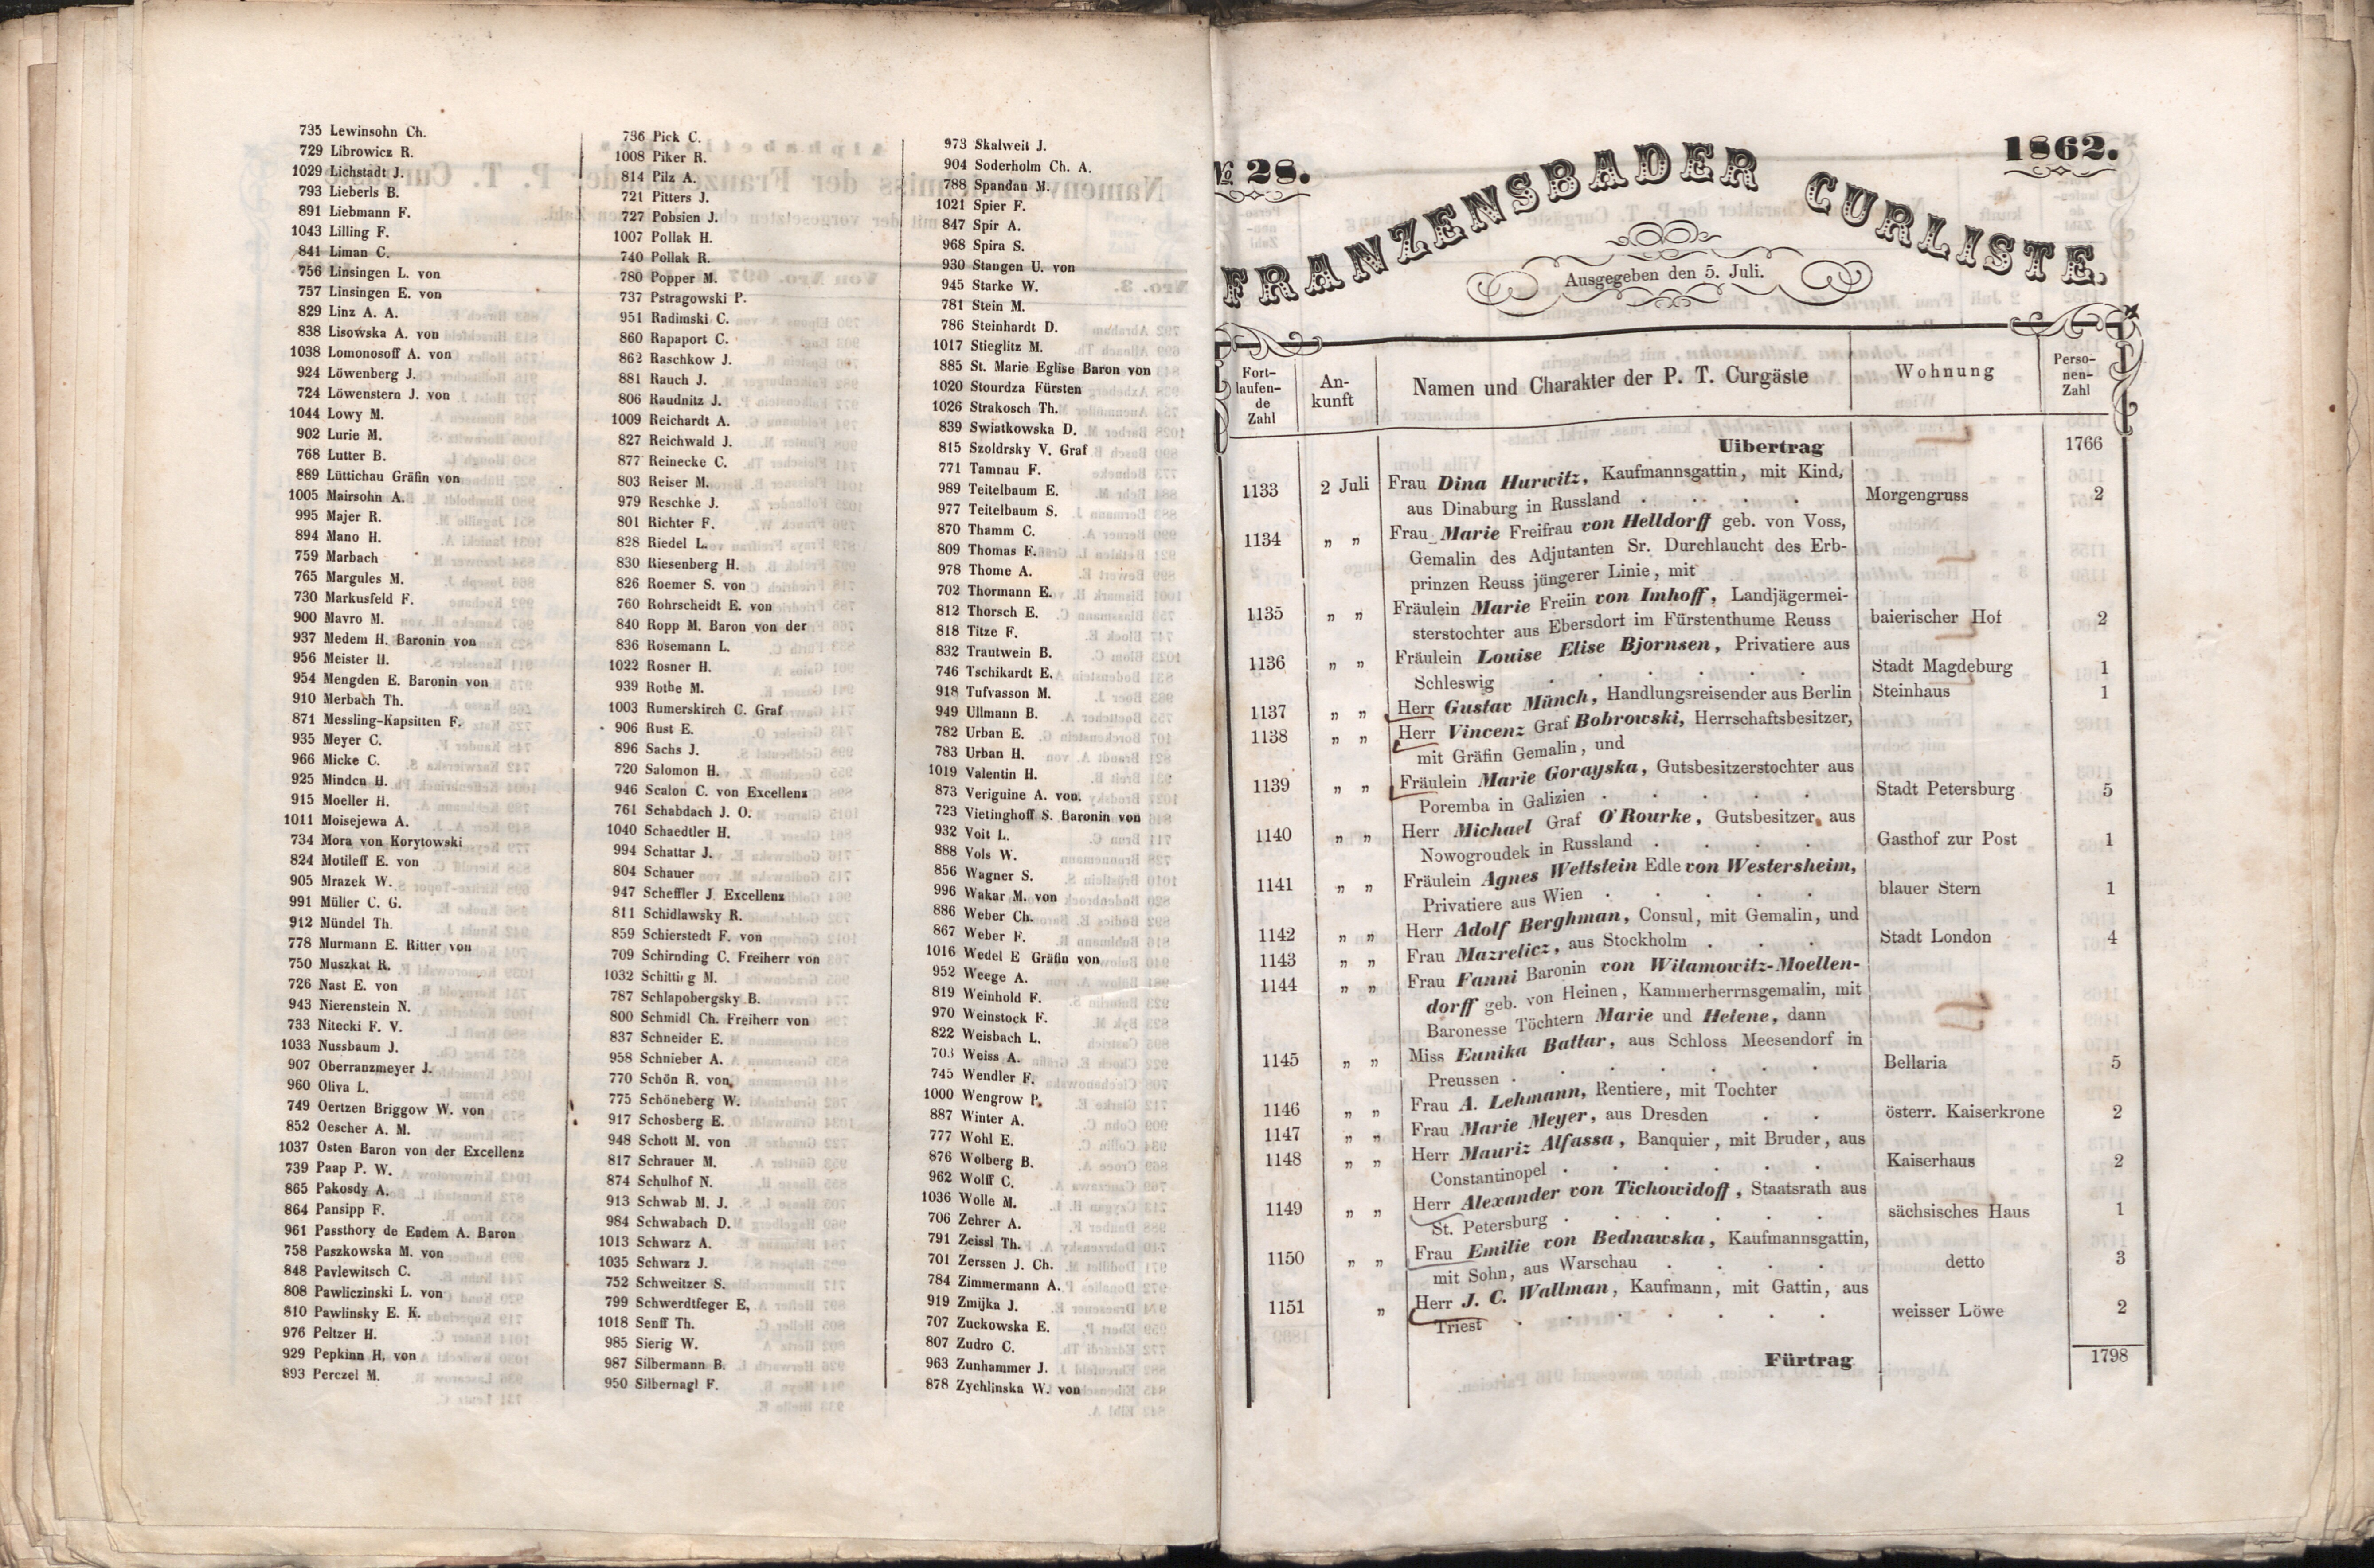 735 Lewinsohn Ch.
729 Librowicz R.
1029 Lichstadt J.
793 Lieberls B.
891 Liebmann F.
1043 Lilling F.
841 Liman C.
756 Linsingen L. von
757 Linsingen E. von
829 Linz A. A.
838 Lisowska A. von
1038 Lomonosoff A. von
924 Löwenberg J.
724 Löwenstern J. von
1044 Lowy M.
902 Lurie M.
768 Lutter B.
889 Lüttichau Gräfin von
1005 Mairsohn A.
995 Majer R.
894 Mano H.
759 Marbach
765 Margules M.
730 Markusfeld F.
900 Mavro M.
937 Medem H. Baronin von
956 Meister H.
954 Mengden E. Baronin von
910 Merbach Th.
871 Messling-Kapsitten F.
935 Meyer C.
966 Micke C.
925 Minden H.
915 Moeller H.
1011 Moisejewa A.
734 Mora von Korytowski
824 Motileff E. von
905 Mrazek W.
991 Müller C. G.
912 Mündel Th.
778 Murmann E. Ritter von
750 Muszkat R.
726 Nast E. von
943 Nierenstein N.
733 Nitecki F. V.
1033 Nussbaum J.
907 Oberranzmeyer J.
960 Oliva L.
749 Oertzen Briggow W. von
852 Oescher A. M.
1037 Osten Baron von der Excellenz
739 Paap P. W.
865 Pakosdy A.
864 Pansipp F.
961 Passthory de Eadem A. Baron
758 Paszkowska M. von
848 Pavlewitsch C.
808 Pawliczinski L. von
810 Pawlinsky E. K.
976 Peltzer H.
929 Pepkinn H. von
893 Perczel M.
736 Pick C.
1008 Piker R.
814 Pilz A.
721 Pitters J.
727 Pobsien J.
1007 Pollak H.
740 Pollak R.
780 Popper M.
737 Pstragowski P.
951 Radimski C.
860 Rapaport C.
862 Raschkow J.
881 Rauch J.
806 Raudnitz J.
1009 Reichardt A.
827 Reichwald J.
877 Reinecke C.
803 Reiser M.
979 Reschke J.
801 Richter F.
828 Riedel L.
830 Riesenberg H.
826 Roemer S. von
760 Rohrscheidt E. von
840 Ropp M. Baron von der
836 Rosemann L.
1022 Rosner H.
939 Rothe M.
1003 Rumerskirch C. Graf
906 Rust E.
896 Sachs J.
720 Salomon H.
946 Scalon C. von Excellenz
761 Schabdach J. O.
1040 Schaedtler H.
994 Schattar J.
804 Schauer
947 Scheffler J. Excellenz
811 Schidlawsky R.
859 Schierstedt F. von
709 Schirnding C. Freiherr von
1032 Schitting M.
787 Schlapobergsky B.
800 Schmidl Ch. Freiherr von
837 Schneider E.
958 Schnieber A.
770 Schön R. von
775 Schöneberg W.
917 Schosberg E.
948 Schott M. von
817 Schrauer M.
874 Schulhof N.
913 Schwab M. J.
984 Schwabach D.
1013 Schwarz A.
1035 Schwarz J.
752 Schweitzer S.
799 Schwerdtfeger E,
1018 Senff Th.
985 Sierig W.
987 Silbermann B.
950 Silbernagl F.
973 Skalweit J.
904 Soderholm Ch. A.
788 Spandau M.
1021 Spier F.
847 Spir A.
968 Spira S.
930 Stangen U. von
945 Starke W.
781 Stein M.
786 Steinhardt D.
1017 Stieglitz M.
885 St. Marie Eglise Baron von
1020 Stourdza Fürsten
1026 Strakosch Th.
839 Swiatkowska D.
815 Szoldrsky V. Graf
771 Tamnau F.
989 Teitelbaum E.
977 Teitelbaum S.
870 Thamm C.
809 Thomas F.
978 Thome A.
702 Thormann E.
812 Thorsch E.
818 Titze F.
832 Trautwein B.
746 Tschikardt E.
918 Tufvasson M.
949 Ullmann B.
782 Urban E.
783 Urban H.
1019 Valentin H.
873 Veriguine A. von
723 Vietinghoff S. Baronin von
932 Voit L.
888 Vols W.
856 Wagner S.
996 Wakar M. von
886 Weber Ch.
867 Weber F.
1016 Wedel E Gräfin von
952 Weege A.
819 Weinhold F.
970 Weinstock F.
822 Weisbach L.
703 Weiss A.
745 Wendler F.
1000 Wengrow P.
887 Winter A.
777 Wohl E.
876 Wolberg B.
962 Wolff C.
1036 Wolle M.
706 Zehrer A.
791 Zeissl Th.
701 Zerssen J. Ch.
784 Zimmermann A.
919 Zmijka J.
707 Zuckowska E.
807 Zudro C.
963 Zunhammer J.
878 Zychlinska W. von
№ 28.
1862.
FRANZENSBADER CURLISTE.
Ausgegeben den 5. Juli.
Fort-
laufen-
de
Zahl
An-
kunft
Namen und Charakter der P. T. Curgäste
Wohnung
Perso-
nen-
Zahl
Uibertrag 1766
1133 2 Juli Frau Dina Hurwitz, Kaufmannsgattin, mit Kind,
aus Dinaburg in Russland . . . . Morgengruss 2
1134 „ „ Frau Marie Freifrau von Helldorff geb. von Voss,
Gemalin des Adjutanten Sr. Durchlaucht des Erb-
prinzen Reuss jüngerer Linie, mit
1135 „ „ Fräulein Marie Freiin von Imhoff, Landjägermei-
sterstochter aus Ebersdorf im Fürstenthume Reuss baierischer Hof 2
1136 „ „ Fräulein Louise Elise Bjornsen, Privatiere aus
Schleswig . . . . . . Stadt Magdeburg 1
1137 „ „ Herr Gustav Münch, Handlungsreisender aus Berlin Steinhaus 1
1138 „ „ Herr Vincenz Graf Bobrowski, Herrschaftsbesitzer,
mit Gräfin Gemalin, und
1139 „ „ Fräulein Marie Gorayska, Gutsbesitzerstochter aus
Poremba in Galizien . . . . . Stadt Petersburg 5
1140 „ „ Herr Michael Graf O'Rourke, Gutsbesitzer, aus
Nowogroudek in Russland . . . . Gasthof zur Post 1
1141 „ „ Fräulein Agnes Wettstein Edle von Westersheim,
Privatiere aus Wien . . . . . blauer Stern 1
1142 „ „ Herr Adolf Berghman, Consul, mit Gemalin, und
1143 „ „ Frau Mazrelicz, aus Stockholm . . . Stadt London 4
1144 „ „ Frau Fanni Baronin von Wilamowitz-Moellen-
dorff geb. von Heinen, Kammerherrnsgemalin, mit
Baronesse Töchtern Marie und Helene, dann
1145 „ „ Miss Eunika Battar, aus Schloss Meesendorf in
Preussen . . . . . . . Bellaria 5
1146 „ „ Frau A. Lehmann, Rentiere, mit Tochter
1147 „ „ Frau Marie Meyer, aus Dresden . . österr. Kaiserkrone 2
1148 „ „ Herr Mauriz Alfassa, Banquier, mit Bruder, aus
Constantinopel . . . . . . Kaiserhaus 2
1149 „ „ Herr Alexander von Tichowidoff, Staatsrath aus
St. Petersburg . . . . . . sächsisches Haus 1
1150 „ „ Frau Emilie von Bednawska, Kaufmannsgattin,
mit Sohn, aus Warschau . . . . detto 3
1151 „ Herr J. C. Wallman, Kaufmann, mit Gattin, aus
Triest . . . . . . . weisser Löwe 2
Fürtrag 1798